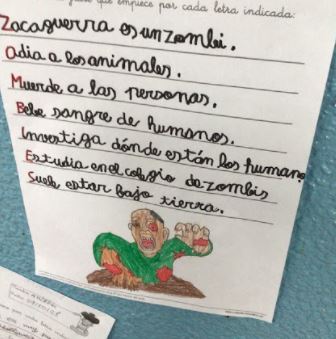 que empiece por cada letra indicada:
Zocaguerra es un zombi.
Odia a los animales.
Muerde a las personas.
Bebe sangre de humanos.
Investiga dónde están los humano
Estudia en el colegio de zombis
Suele estar bajo tierra.